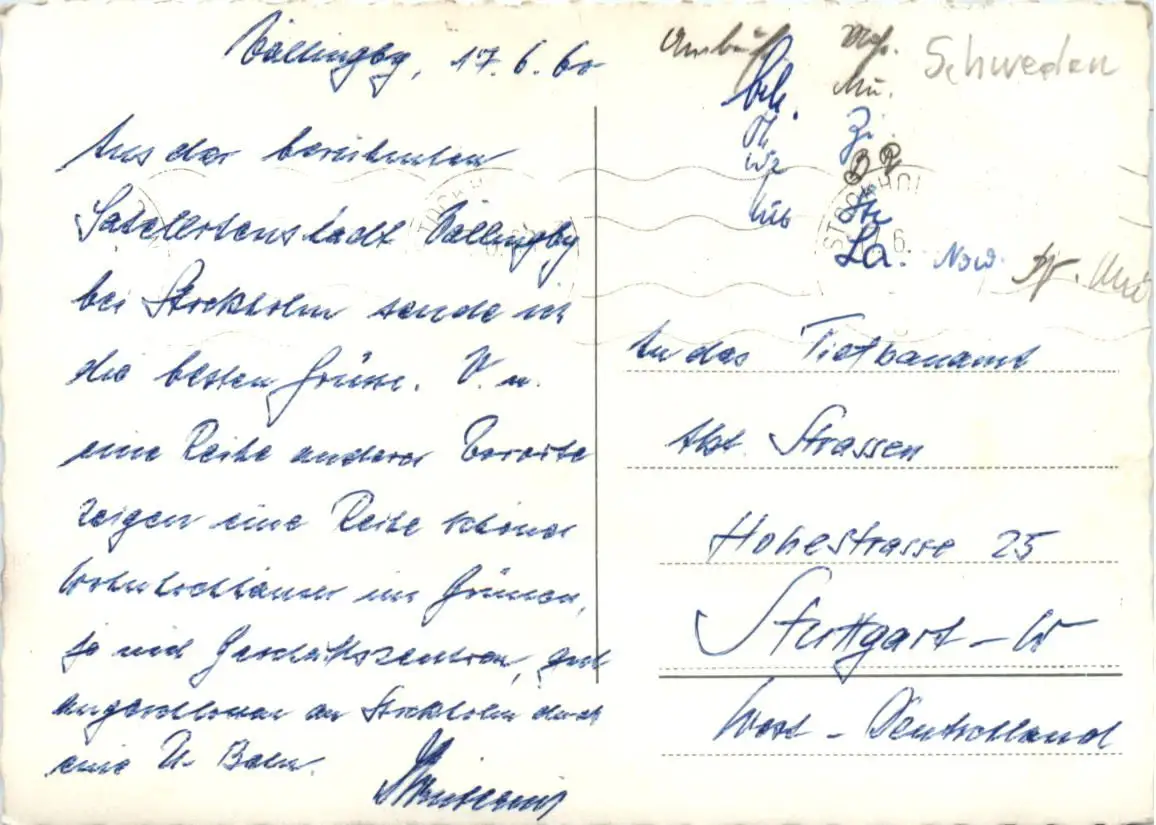 Vällingby, 17.6.60
Aus der berühmten
Satellitenstadt Vällingby
bei Stockholm sende ich
die besten Grüsse. V. u.
eine Reihe anderer Vororte
zeigen eine Reihe schöner
Wohnhochhäuser im Grünen,
je mit Geschäftszentren, gut
angeschlossen an Stockholm durch
eine U. Bahn.
Schweden
Mü.
Zi.
La. Now.
STOCKHOL
6.
An das Tiefbauamt
Abt. Strassen
Hohestrasse 25
Stuttgart - W
West - Deutschland